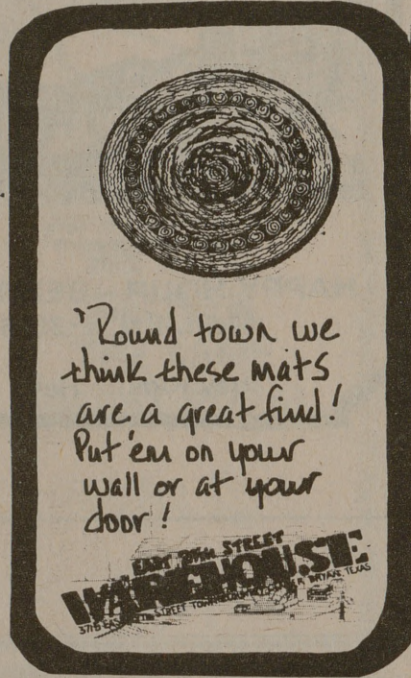 'Round town we
think these mats
are a great find!
Put 'em on your
wall or at your
door!
EAST 29TH STREET
WAREHOUSE
STREET TOWN BRYAN, TEXAS